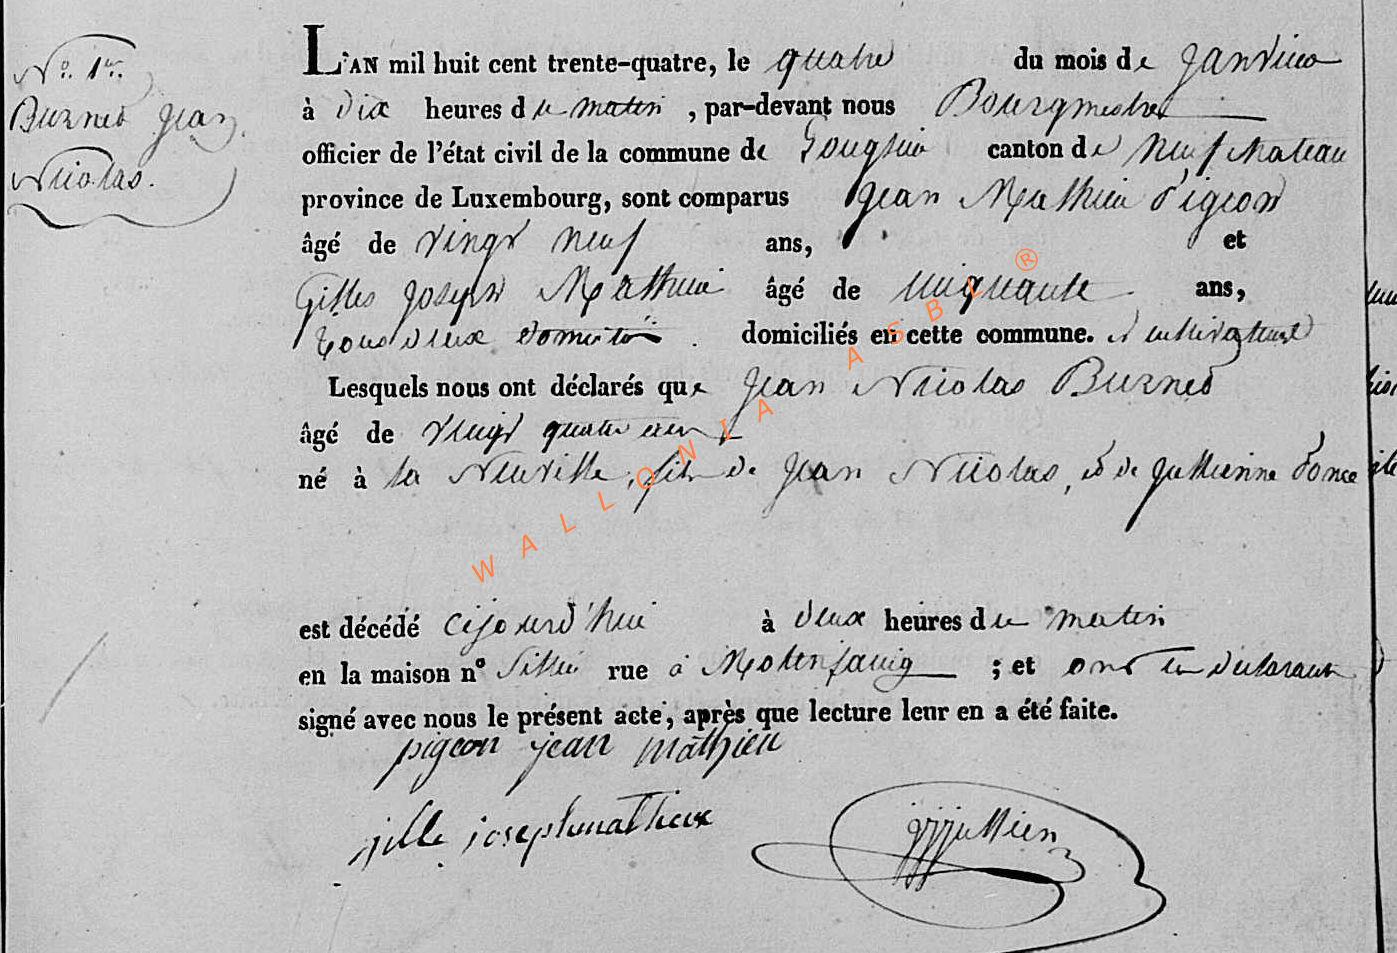 N.o 1er.
Burnet Jean
Nicolas.
L'AN mil huit cent trente-quatre, le quatre du mois de Janvier
à dix heures du matin, par-devant nous Bourgmestre
officier de l'état civil de la commune de canton de Neufchateau
province de Luxembourg, sont comparus Jean Mathieu Pigeon
âgé de vingt neuf ans, et
Gilles Joseph Mathieu âgé de cinquante ans,
tous deux domiciliés en cette commune. et cultivateurs
Lesquels nous ont déclarés que Jean Nicolas Burnet
âgé de vingt quatre ans
né à la Neuville, fils de Jean Nicolas, et de Jullienne Ponce
est décédé cejourd'hui à deux heures du matin
en la maison no rue à Molinfaing ; et ont les déclarants
signé avec nous le présent acte, après que lecture leur en a été faite.
pigeon jean mathieu
jille joseph mathieux
jullien
WALLONIA ASBL ®